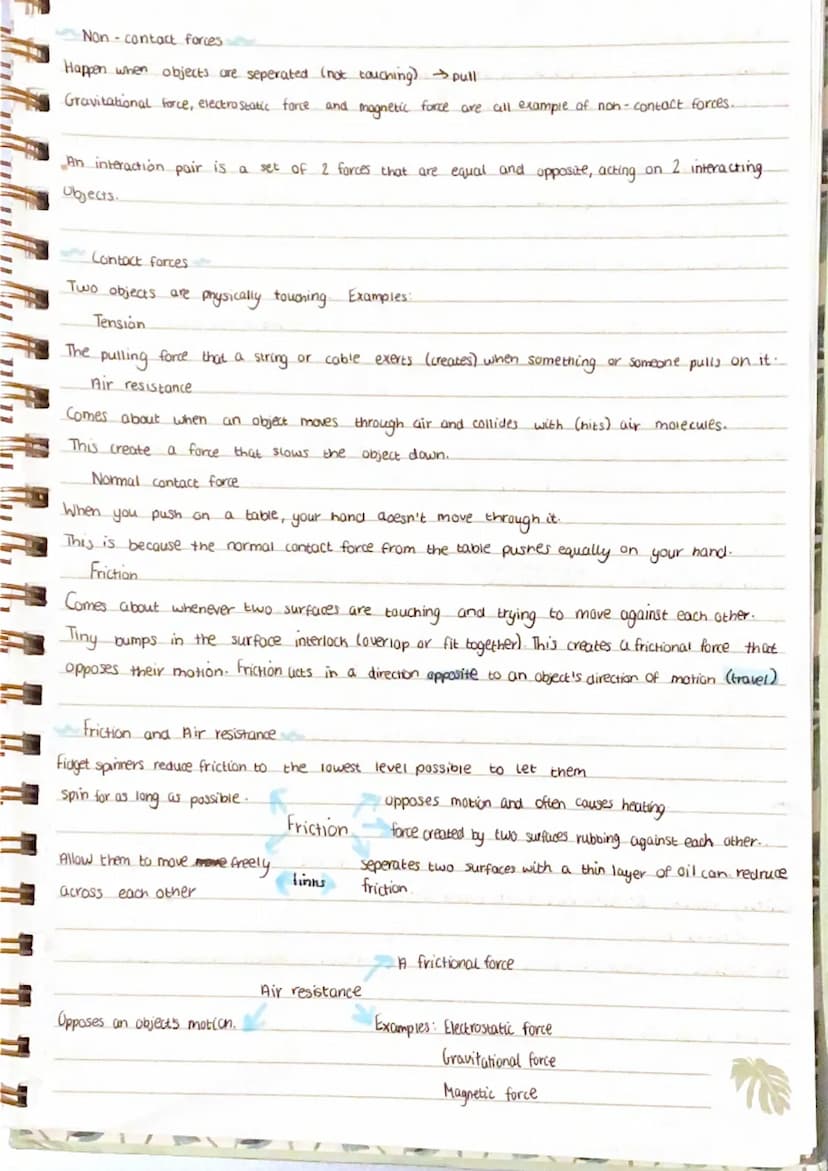 Non-contact forces
Happen when objects are seperated (not touching) → pull
Gravitational force, electrostatic force and magnetic force are all example of non-contact forces.
An interaction pair is a set of 2 forces that are equal and opposite, acting on 2 interacting
Objects.
Contact forces
Two objects are physically touching. Examples:
Tension
The pulling force that a string or cable exerts (creates) when something or someone pulls on it.
Air resistance
Comes about when an object moves through air and collides with (hits) air molecules.
This create a force that slows the object down.
Normal contact force
When you push on a table, your hand doesn't move through it.
This is because the normal contact force from the table pushes equally on your hand.
Friction
Comes about whenever two surfaces are touching and trying to move against each other.
Tiny bumps in the surface interlock (overlap or fit together). This creates a frictional force that
opposes their motion. Friction acts in a direction opposite to an object's direction of motion (travel)
Friction and Air resistance
Fidget spinners reduce friction to the lowest level possible to let them
spin for as long as possible.
opposes motion and often causes heating
Friction
force created by two surfaces rubbing against each other.
Allow them to move freely
across each other
links
seperates two surfaces with a thin layer of oil can redruce
friction.
A frictional force
Air resistance
Opposes an objects motion.
Examples: Electrostatic force
Gravitational force
Magnetic force